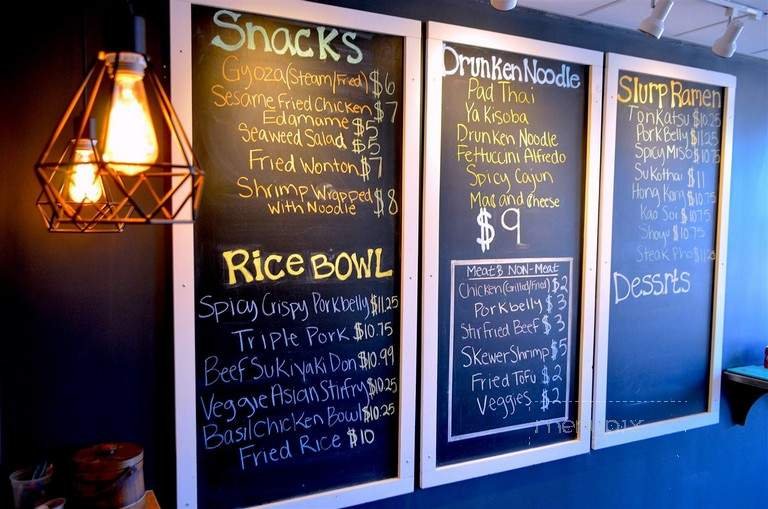 Snacks
Gyoza (Steam/Fried) $6
Sesame Fried Chicken $7
Edamame $5
Seaweed Salad $5
Fried Wonton $7
Shrimp Wrapped
with Noodle $8
Rice BOWL
Spicy Crispy Porkbelly $11.25
Triple Pork $10.75
Beef Sukiyaki Don $10.99
Veggie Asian Stirfry $10.25
Basil Chicken Bowl $10.25
Fried Rice $10
Drunken Noodle
Pad Thai
Yakisoba
Drunken Noodle
Fettuccini Alfredo
Spicy Cajun
Mac and Cheese
$9
Meat & Non-Meat
Chicken (Grilled/Fried) $2
Porkbelly $3
Stir Fried Beef $3
Skewer Shrimp $5
Fried Tofu $2
Veggies $2
Slurp Ramen
Tonkatsu $10.25
Pork Belly $11.25
Spicy Miso $10.75
Sukothai $11
Hong Kong $10.75
Kao Soi $10.75
Shoyu $10.75
Steak Pho
Dessrts
menupix